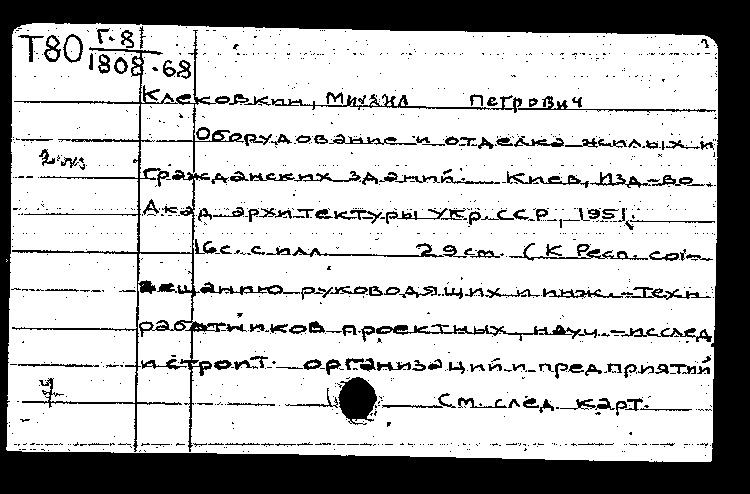 Т80 Г-8
1808-68
Клековкин, Михаил Петрович
Оборудование и отделка жилых и
2 экз
гражданских зданий. Киев, Изд-во
Акад архитектуры Укр. ССР, 1951.
16 с. с илл. 29 см. (К Респ. сов-
ещанию руководящих и инж.-техн
работников проектных, науч.-исслед
и строит. организаций и предприятий
См. след. карт.